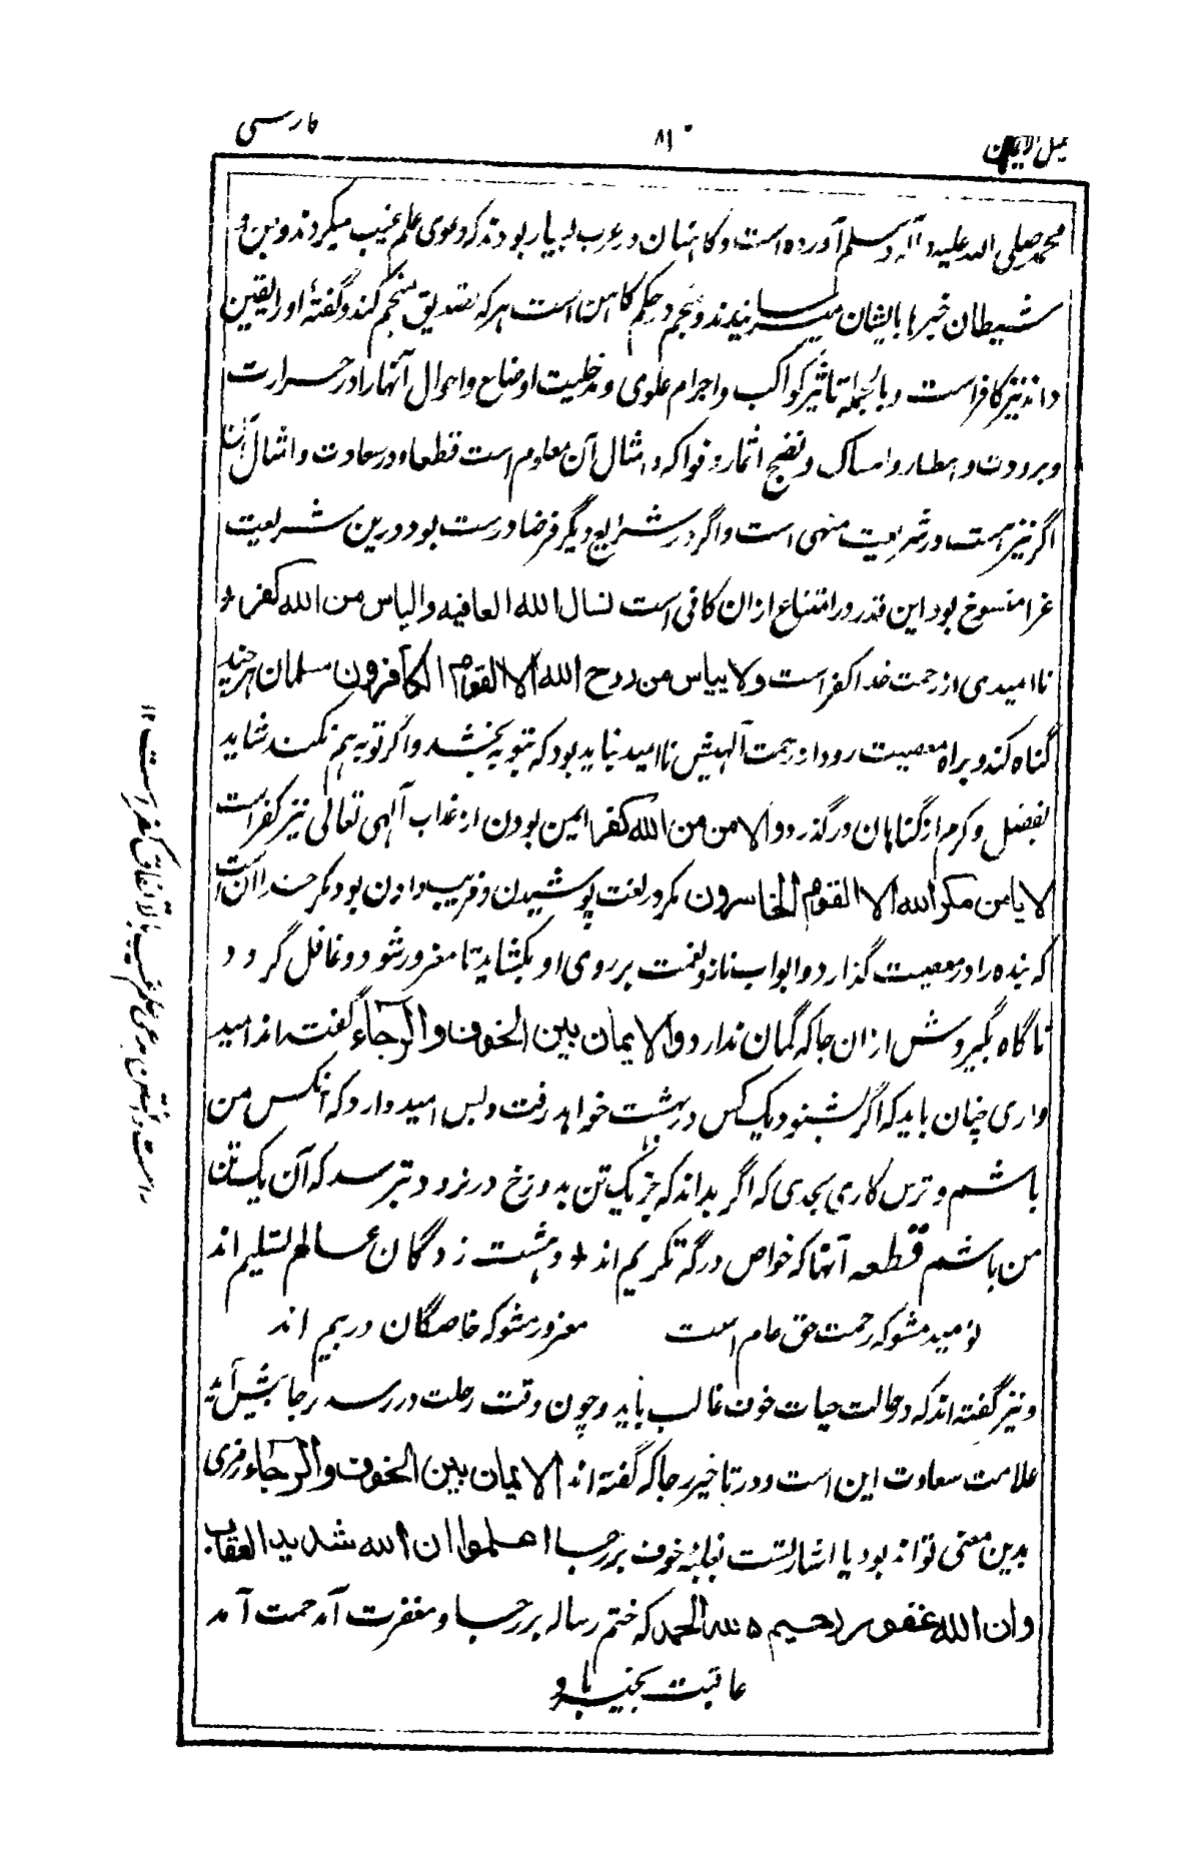 تکمیل الایمان ۸۱ فارسی
محمد صلی الله علیه و آله وسلم آورده است و کاهنان در عرب بسیار بودند که دعوی علم غیب میکردند و جن و
شیطان خبرها بایشان میرسانیدند و منجم در حکم کاهن است هر که تصدیق منجم کند و گفتهٔ او را یقین
داند نیز کافر است و بالجمله تاثیر کواکب و اجرام علوی و دخلیت اوضاع و احوال آنها را در حرارت
و برودت و امطار و امساک و نضج اثمار و فواکه و امثال آن معلوم است قطعا و در سعادت و امثال آن
اگر نیز است در شریعت منهی است و اگر در شرایع دیگر فرضا درست بود درین شریعت
غرا منسوخ بود این قدر در امتناع ازان کافی است نسال الله العافیه والیاس من الله کفر +
ناامیدی از رحمت خدا کفر است ولا ییاس من روح الله الا القوم الکافرون مسلمان هر چند
گناه کند و براه معصیت رود از رحمت الهیش ناامید نباید بود که بتوبه بخشد و اگر توبه هم نکند شاید
بفضل و کرم از گناهان در گذرد والامن من الله کفر ایمن بودن از عذاب الهی تعالی نیز کفر است
لا یامن مکر الله الا القوم الخاسرون مکر در لغت پوشیدن و فریب دادن بود مکر خدا آن است
که بنده را در معصیت گذارد و ابواب ناز و نعمت بر روی او بکشاید تا مغرور شود و غافل گردد
ناگاه بگیردش ازان جا که گمان ندارد والایمان بین الخوف والرجاء گفته اند امید
واری چنان باید که اگر بشنود یک کس در بهشت خواهد رفت و بس امید دارد که آنکس من
باشم و ترس کاری بحدی که اگر بداند که جز یک تن بدوزخ در نرود بترسد که آن یک تن
من باشم قطعه آنها که خواص درگه تکریم اند + دهشت زدگان عالم تسلیم اند
نومید مشو که رحمت حق عام است مغرور مشو که خاصگان در بیم اند
و نیز گفته اند که در حالت حیات خوف غالب باید و چون وقت رحلت در رسد رجا بیش آید
علامت سعادت این است و در تاخیر رجا که گفته اند الایمان بین الخوف والرجاء رمزی
بدین معنی تواند بود یا اشارتست بغلبهٔ خوف بر رجا اعلموا ان الله شدید العقاب
وان الله غفور رحیم ه لله الحمد که ختم رساله بر رجا و مغفرت آمد رحمت آمد
عاقبت بخیر باد
داشتن مدعی علم غیب بالاتفاق کفر است ۱۲